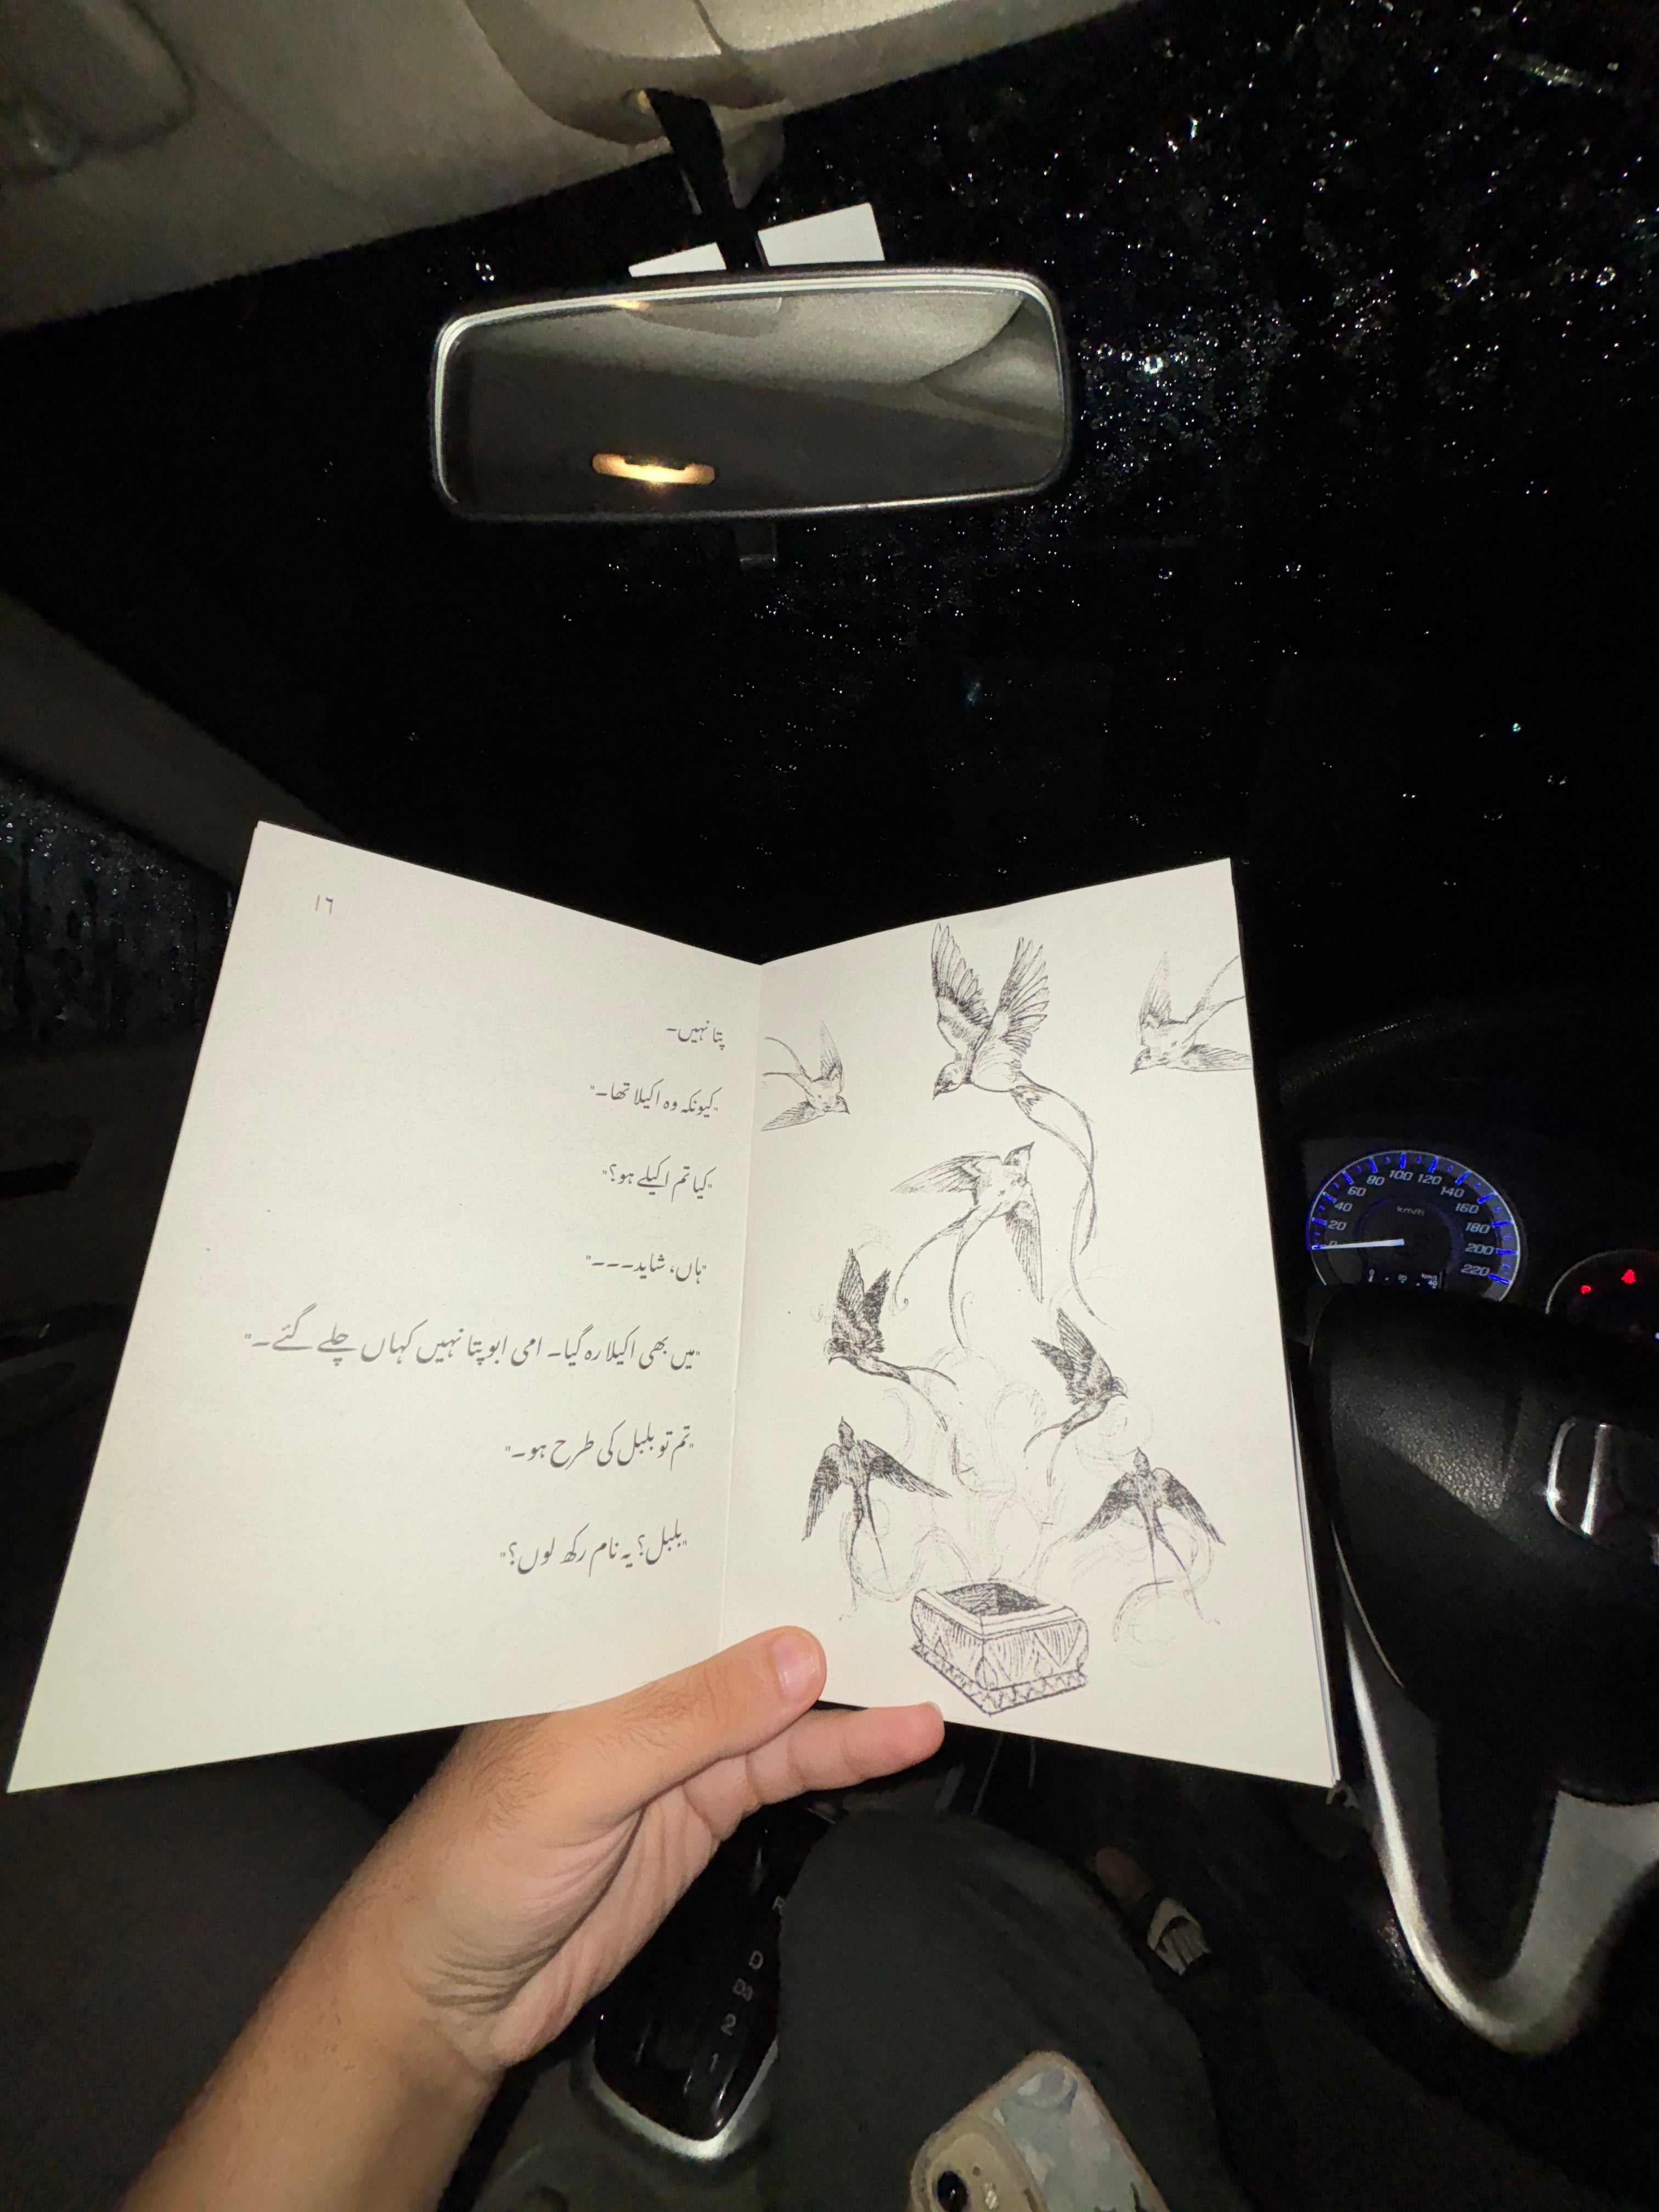 ١٦
پتا نہیں۔
"کیونکہ وہ اکیلا تھا۔"
"کیا تم اکیلے ہو؟"
"ہاں، شاید۔۔۔"
"میں بھی اکیلا رہ گیا۔ امی ابو پتا نہیں کہاں چلے گئے۔"
"تم تو بلبل کی طرح ہو۔"
"بلبل؟ یہ نام رکھ لوں؟"
0
20
40
60
80
100
120
140
160
180
200
220
km/h
R
D
D3
2
1